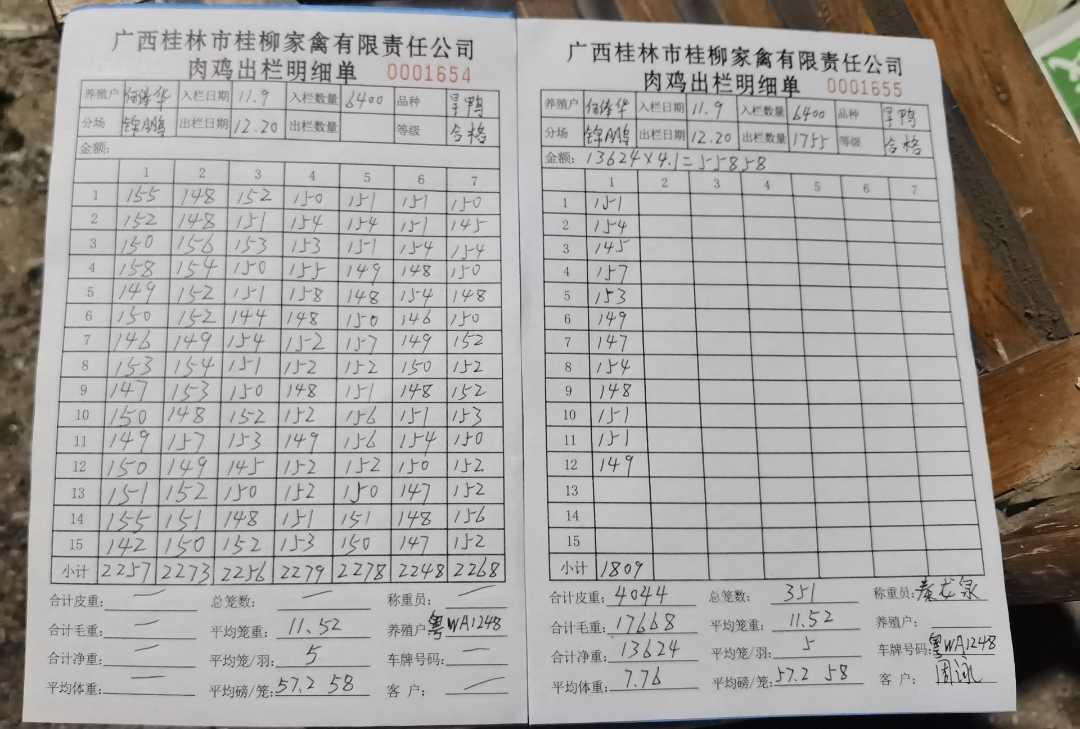 广西桂林市桂柳家禽有限责任公司
肉鸡出栏明细单 0001654
养殖户 入栏日期 11.9 入栏数量 6400 品种 旱鸭
分场 锦鹏 出栏日期 12.20 出栏数量 等级 合格
金额:
1 2 3 4 5 6 7
1 155 148 152 150 151 151 150
2 152 148 151 154 154 151 145
3 150 156 153 153 151 154 154
4 158 154 150 155 149 148 150
5 149 152 151 158 148 154 148
6 150 152 144 148 150 146 150
7 146 149 154 152 157 149 152
8 153 154 151 152 152 150 152
9 147 153 150 148 151 148 152
10 150 148 152 152 156 151 153
11 149 157 153 149 156 154 150
12 150 149 145 152 152 150 152
13 151 152 150 152 150 147 152
14 155 151 148 151 151 148 156
15 142 150 152 153 150 147 152
小计 2257 2273 2256 2279 2278 2248 2268
合计皮重: — 总笼数: — 称重员: —
合计毛重: — 平均笼重: 11.52 养殖户: 粤WA1248
合计净重: — 平均笼/羽: 5 车牌号码: —
平均体重: — 平均磅/笼: 57.2 58 客户: —
广西桂林市桂柳家禽有限责任公司
肉鸡出栏明细单 0001655
养殖户 入栏日期 11.9 入栏数量 6400 品种 旱鸭
分场 锦鹏 出栏日期 12.20 出栏数量 1755 等级 合格
金额: 13624×4.1=55858
1 2 3 4 5 6 7
1 151
2 154
3 145
4 157
5 153
6 149
7 147
8 154
9 148
10 151
11 151
12 149
13
14
15
小计 1809
合计皮重: 4044 总笼数: 351 称重员: 秦龙泉
合计毛重: 17668 平均笼重: 11.52 养殖户:
合计净重: 13624 平均笼/羽: 5 车牌号码: 粤WA1248
平均体重: 7.76 平均磅/笼: 57.2 58 客户: 周泳